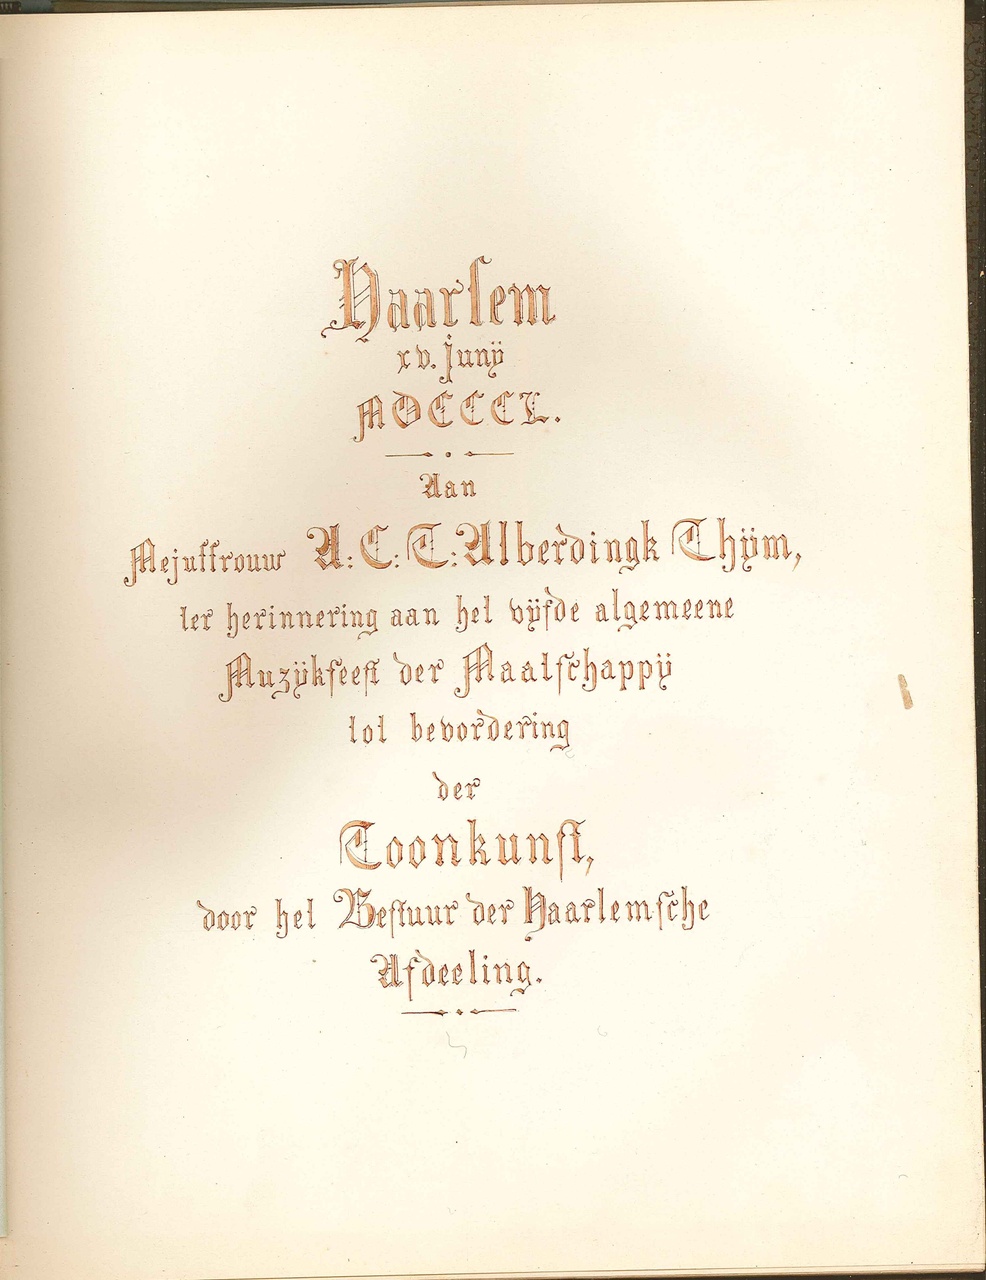 Haarlem
xv. junÿ
MDCCCL.
Aan
Mejuffrouw A: C: T: Alberdingk Thÿm,
ter herinnering aan het vÿfde algemeene
Muzÿkfeest der Maatschappÿ
tot bevordering
der
Toonkunst,
door het Bestuur der Haarlemsche
Afdeeling.